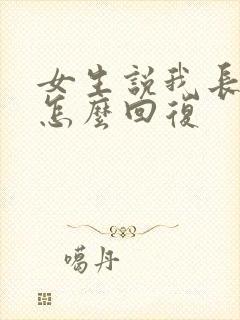 女生說我長
怎麼回復
噶丹